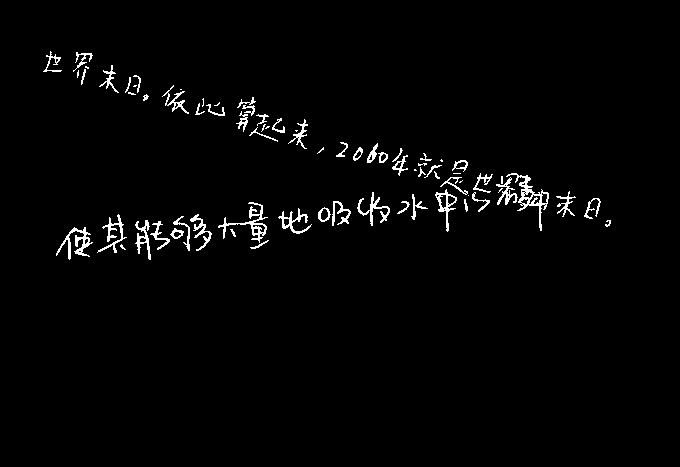 世界末日。依此算起来，2060年就是世界末日。
使其能够大量地吸收水中污